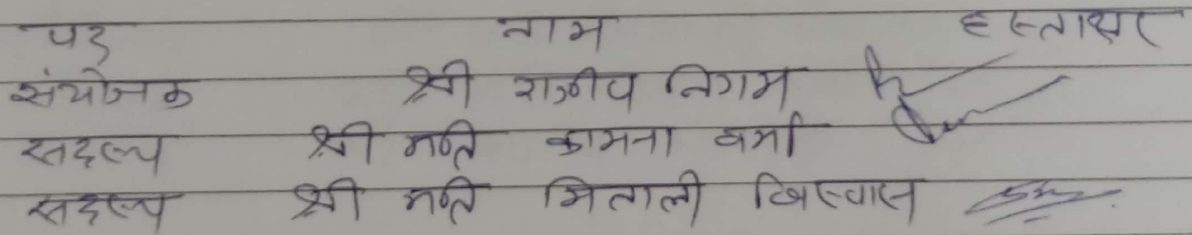 पद नाम हस्ताक्षर
संयोजक श्री राजीव निगम
सदस्य श्री मति कामना वर्मा
सदस्य श्री मति मिताली विस्वास